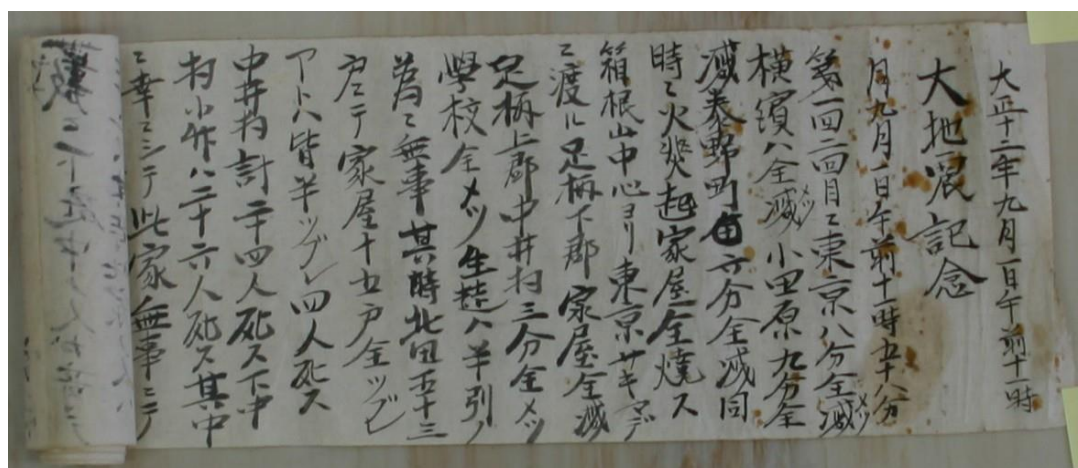 大正十二年九月一日午前十一時
大地震記念
月九月一日午前十一時五十八分
第一回二回目ニ東京八分全滅メツ
横濱ハ全滅メツ小田原九分全
滅秦野町 六分全滅同
時ニ火災起家屋全燒ス
箱根山中心ヨリ東京サキマデ
ニ渡ル足柄下郡家屋全滅
足柄上郡中井村三分全メツ
學校全メツ生徒ハ半引ノ
為ニ無事其時北田五十三
戸ニテ家屋十五戸全ツブレ
アトハ皆半ツブレ四人死ス
中井村計二十四人死ス下中
村小竹ハ二十六人死ス其中
ニ幸ニシテ此家無事ニテ